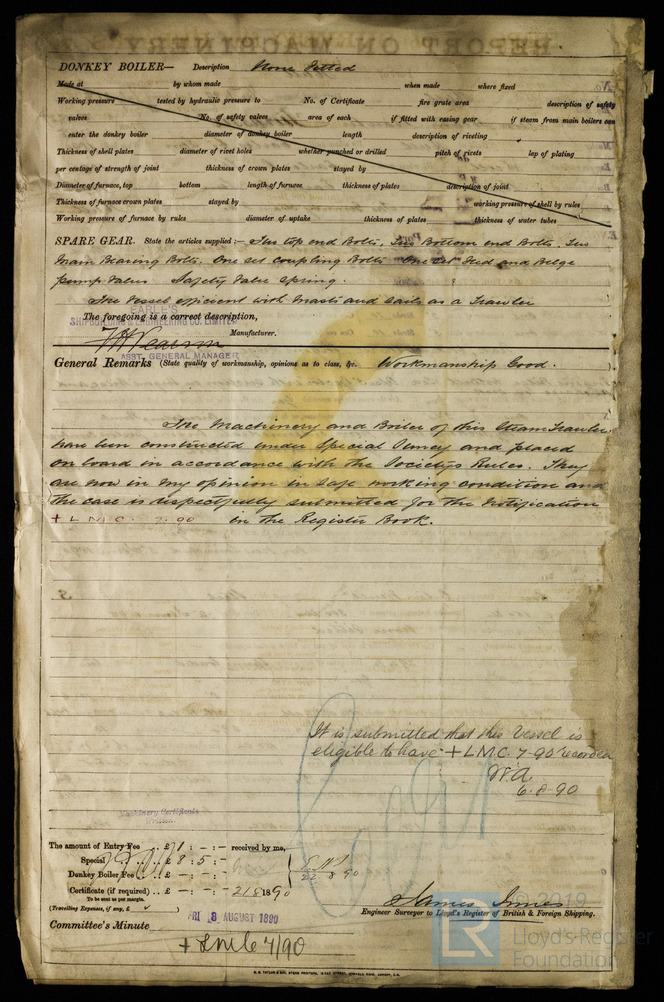 REPORT ON MACHINERY
DONKEY BOILER— Description None fitted
Made at by whom made when made where fixed
Working pressure tested by hydraulic pressure to No. of Certificate fire grate area description of safety
valves No. of safety valves area of each if fitted with easing gear if steam from main boilers can
enter the donkey boiler diameter of donkey boiler length description of riveting
Thickness of shell plates diameter of rivet holes whether punched or drilled pitch of rivets lap of plating
per centage of strength of joint thickness of crown plates stayed by
Diameter of furnace, top bottom length of furnace thickness of plates description of joint
Thickness of furnace crown plates stayed by working pressure of shell by rules
Working pressure of furnace by rules diameter of uptake thickness of plates thickness of water tubes
SPARE GEAR. State the articles supplied:— Two top end Bolts, Two Bottom end Bolts. Two
Main Bearing Bolts. One set Coupling Bolts One set Feed and Bilge
pump Valves Safety Valve Spring.
The Vessel efficient with Masts and Sails as a Trawler
The foregoing is a correct description,
EARLE'S
SHIPBUILDING & ENGINEERING CO. LIMITED
Manufacturer.
ASST. GENERAL MANAGER
General Remarks (State quality of workmanship, opinions as to class, &c. Workmanship Good.
The Machinery and Boiler of this Steam Trawler
have been constructed under Special Survey and placed
on board in accordance with the Society's Rules. They
are now in my opinion in safe working condition and
the case is respectfully submitted for the Notification
+ L M C 7.90 in the Register Book.
It is submitted that this Vessel is
eligible to have + L.M.C. 7-90 recorded
W.A.
6.8.90
Machinery Certificate
Written.
The amount of Entry Fee .. £ 1 : - : - received by me,
Special .. £ 8 : 5 : -
Donkey Boiler Fee .. £ - : - : -
22.8.90
Certificate (if required) .. £ - : - : - 21/8 1890
To be sent as per margin.
(Travelling Expenses, if any, £ )
James Innes
Engineer Surveyor to Lloyd's Register of British & Foreign Shipping.
FRI 8 AUGUST 1890
Committee's Minute
+ LMC 7/90
© 2019
LR
Lloyd's Register
Foundation